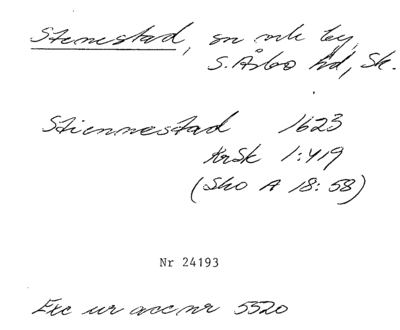 Stenestad, sn och by,
S. Åsbo hd, Sk.
Stiennestad 1623
KrSk 1:419
(Sko A 18:58)
Nr 24193
Exc ur acc nr 5520